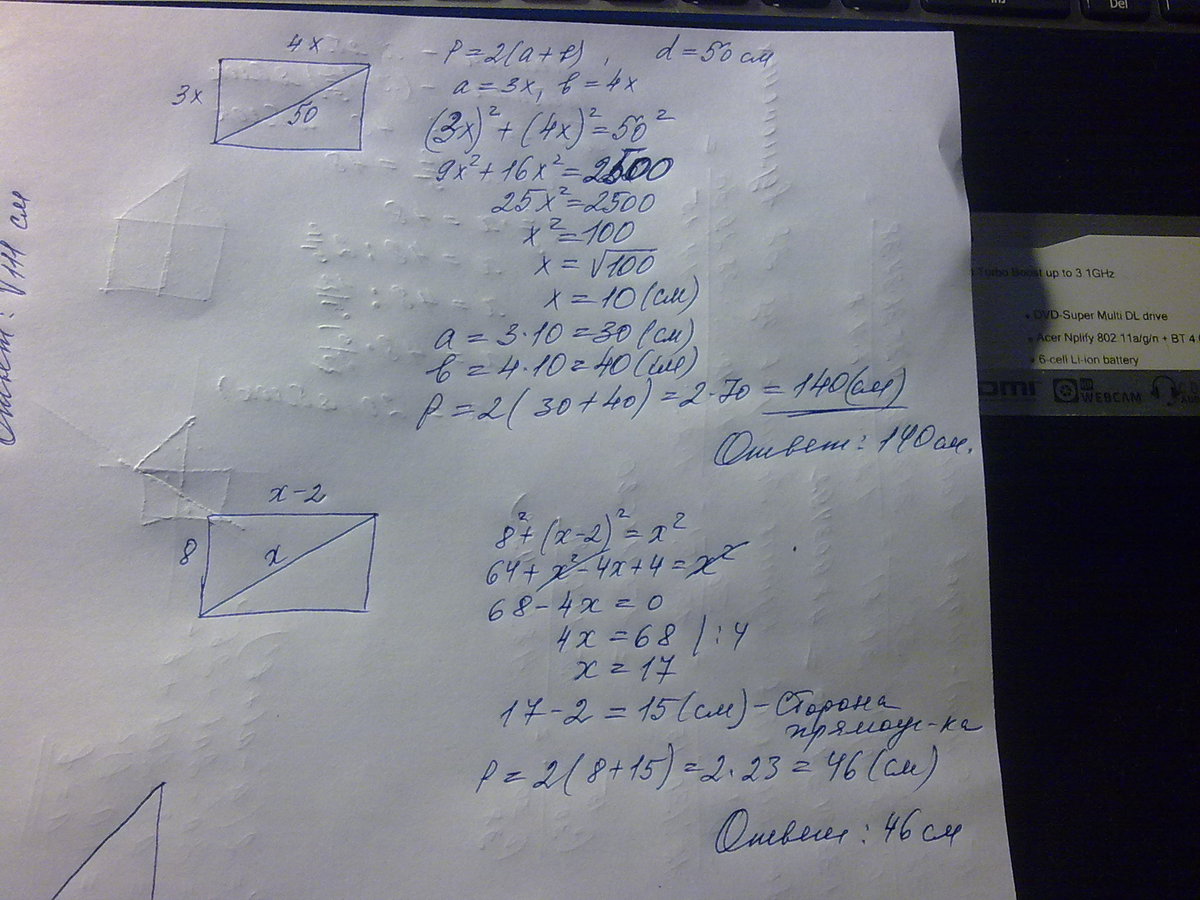 4x
3x
50
P=2(a+в), d=50 см
a=3x, в=4x
(3x)²+(4x)²=50²
9x²+16x²=2500
25x²=2500
x²=100
x=√100
x=10(см)
a=3·10=30(см)
в=4·10=40(см)
P=2(30+40)=2·70=140(см)
Ответ: 140 см.
Ответ: √111 см
x-2
8
x
8²+(x-2)²=x²
64+x²-4x+4=x²
68-4x=0
4x=68 |:4
x=17
17-2=15(см)-Сторона
прямоуг-ка
P=2(8+15)=2·23=46(см)
Ответ: 46 см
Ins
Del
Turbo Boost up to 3.1GHz
• DVD-Super Multi DL drive
• Acer Nplify 802.11a/g/n + BT 4.
• 6-cell Li-ion battery
WEBCAM